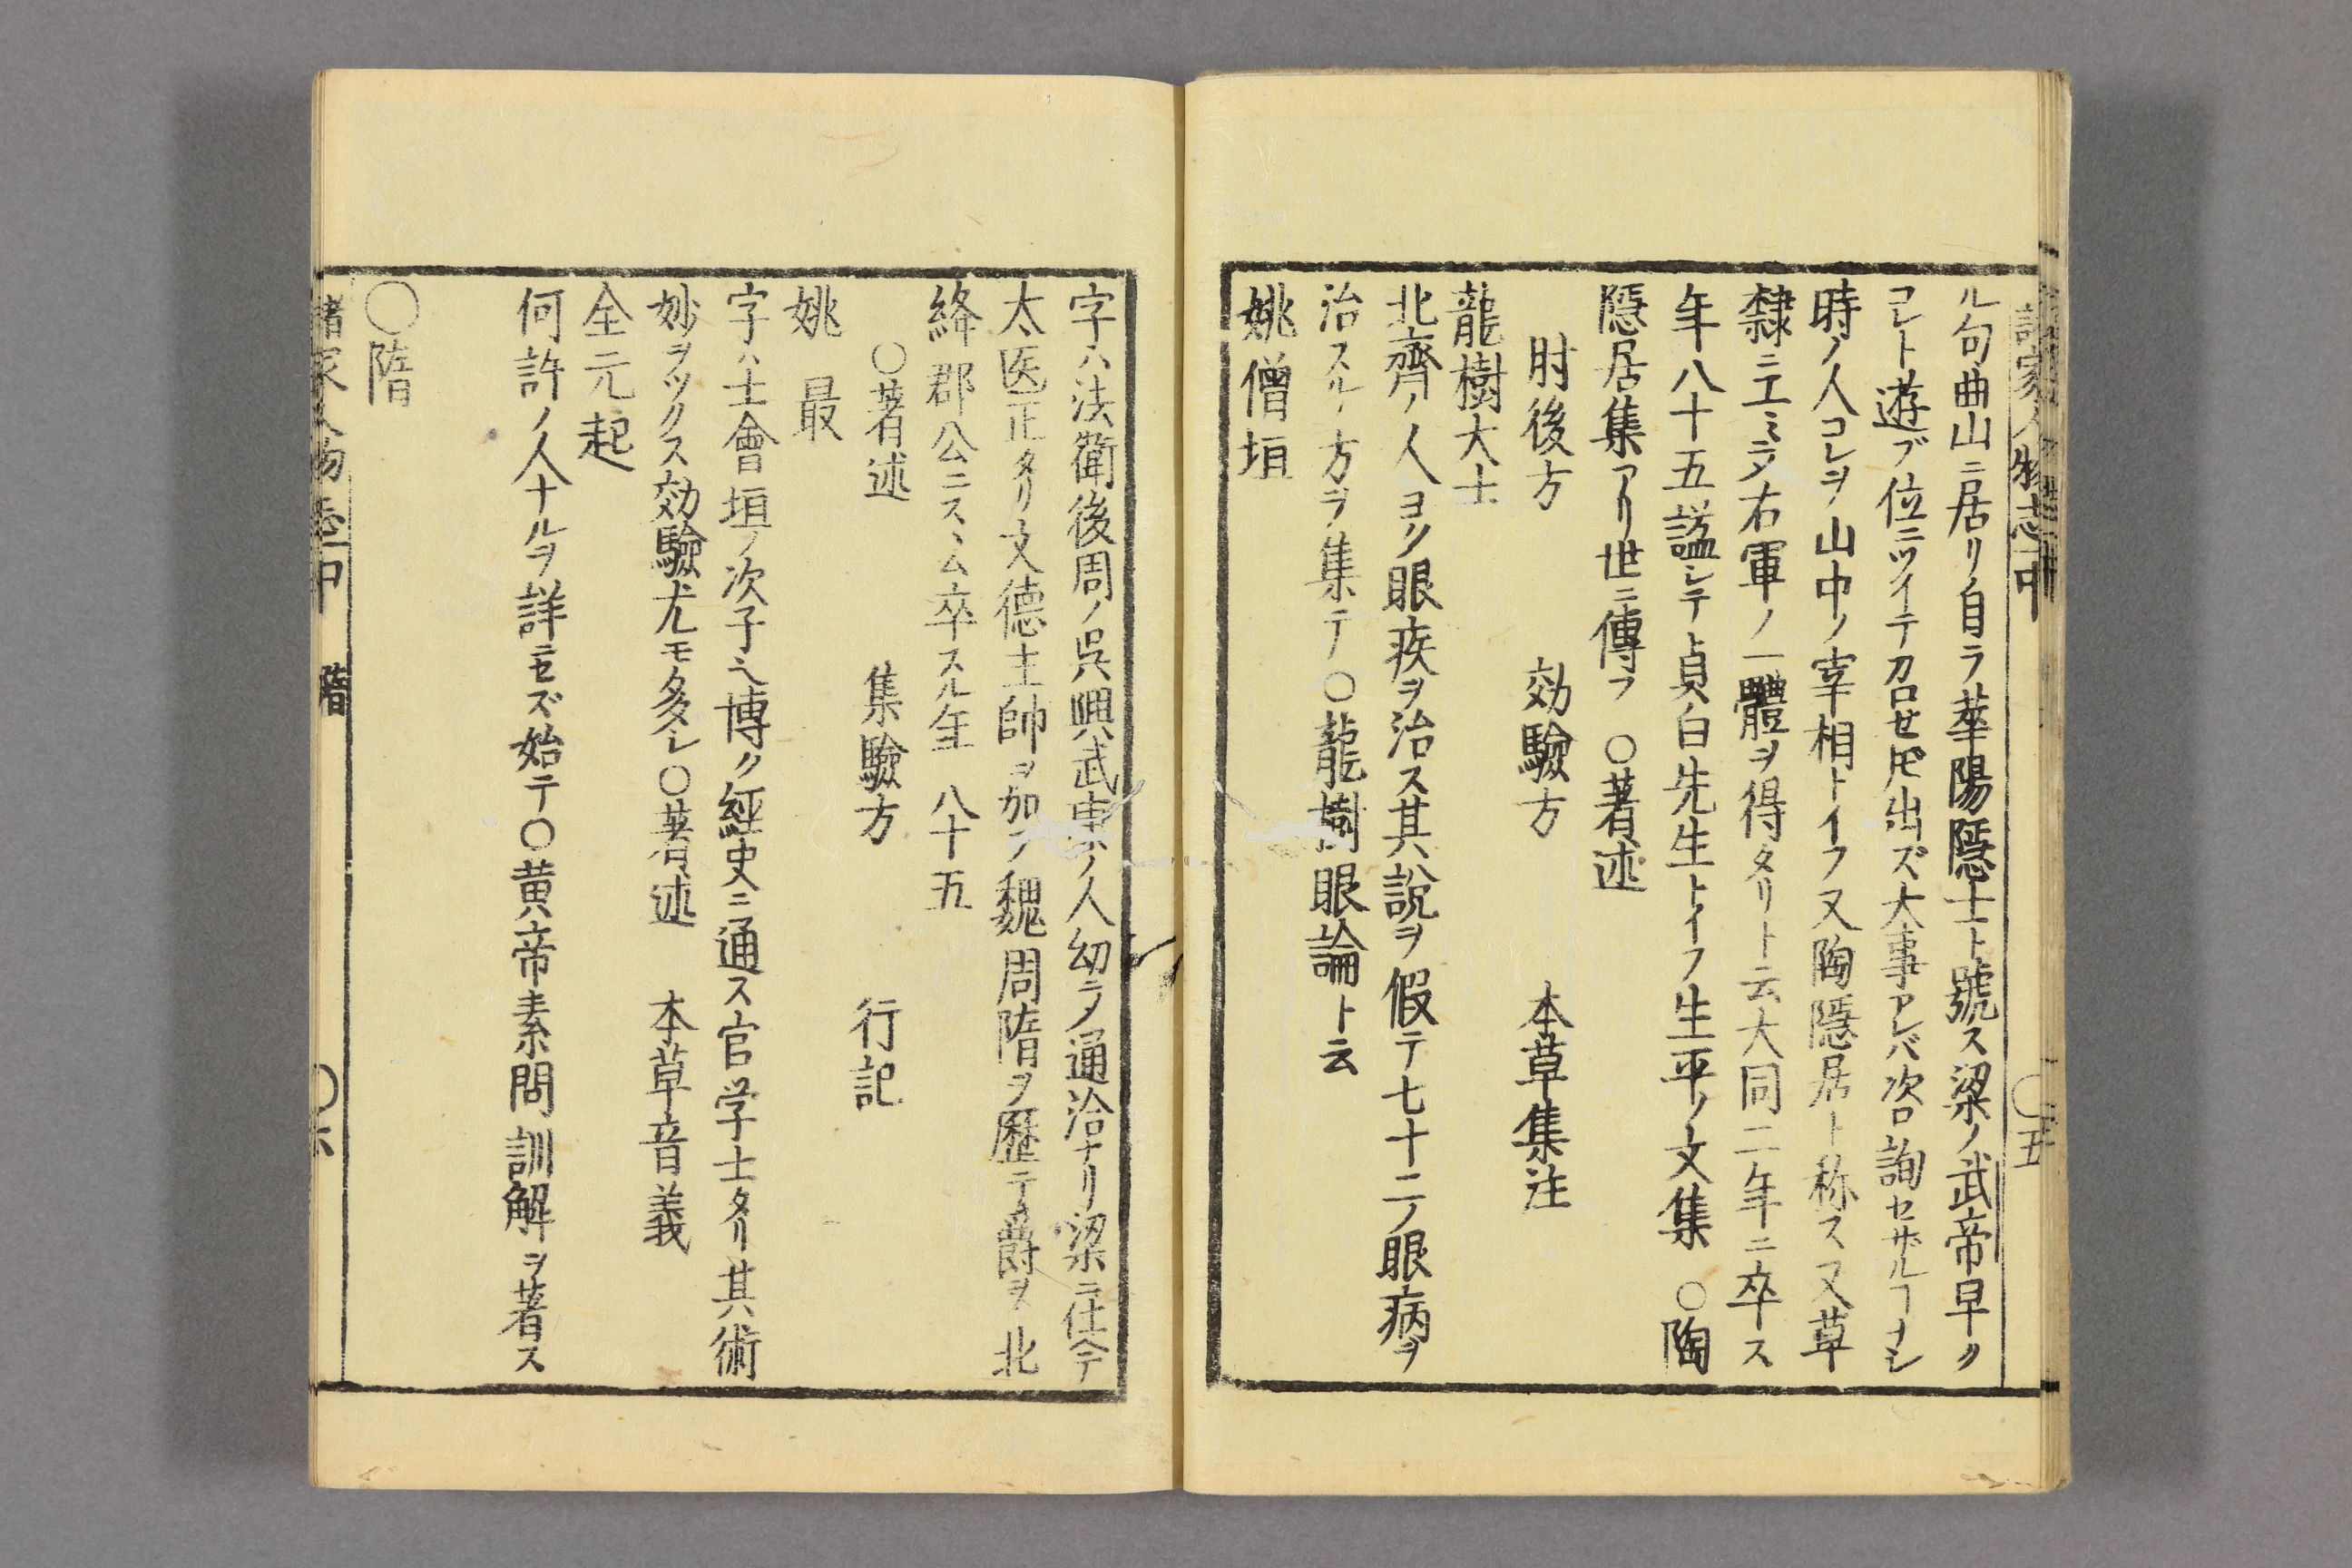 諸家人物志中
〇五
ル句曲山ニ居リ自ラ華陽隱士ト號ス梁ノ武帝早ク
コレト遊ブ位ニツイテ召セ𪜈出ズ大事アレバ咨詢セザルヿナシ
時ノ人コレヲ山中ノ宰相トイフ又陶隱居ト称ス又草
隸ニエミテ右軍ノ一體ヲ得タリト云大同二年ニ卒ス
年八十五謚シテ貞白先生トイフ生平ノ文集〇陶
隱居集アリ世ニ傳フ 〇著述
肘後方 効驗方 本草集注
龍樹大士
北齊ノ人ヨク眼疾ヲ治ス其說ヲ假テ七十二ノ眼病ヲ
治スルノ方ヲ集テ〇龍樹眼論ト云
姚僧垣
字ハ法衛後周ノ呉興武康ノ人幼ヨリ通洽ナリ梁ニ仕合テ
太医正タリ文德主帥ヲ加フ魏周隋ヲ歷テ爵ヲ北
絳郡公ニスヽム卒スル年八十五
〇著述 集驗方 行記
姚最
字ハ士會垣ノ次子也博ク經史ニ通ス官学士タリ其術
妙ヲツクス効驗尤モ多シ〇著述 本草音義
全元起
何許ノ人ナルヲ詳ニセズ始テ〇黄帝素問訓解ヲ著ス
〇隋
諸家人物志中 隋 〇六